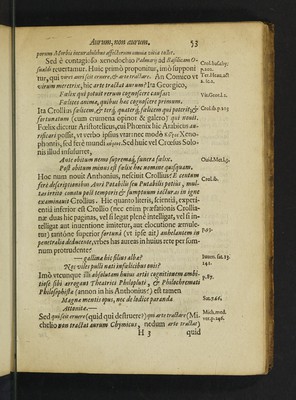 Aurum, non aurum. 53
porum Morbis incurabilibus affectorum omnia vitia tollit.
Sed è contagioso xenodochio Palmarj ad Basilicam Osualdi
revertamur. Huic primò proponitur, imò supponitur,
qui verè auri scit ornere, & arte tractare. An Comico ut
vitrum meretrix, hic arte tractat aurum? Ita Georgico,
Fœlix qui potuit rerum cognoscere causas:
Fœlices anima, quibus hæc cognoscere primum.
Ita Crollio fœlicem & terq́, quaterq́, fœlicem qui potterit, &
fortunatum (cum crumena opinor & galero) qui novit.
Fœlix dicetur Aristotelicus, cui Phœnix hic Arabicus
possit, vt verbo ipsius
Sed huic vel Crœsus Solonis
illud insusurret,
Ante obitum nemo supremaq́, funera fœlix.
Post obitum minus est fœlix hoc nomine quisquam.
Hoc num novit Anthonius, nescivit Crollius? E centum
ferè descriptionibus Auri Potabilis seu Putabilis potius, multas
irrito conatu post temporis & sumptuum iacturam in igne
examinavit Crollius. Hic quanto literis, scientiâ, experientiâ
inferior est Crollio (nec enim præfationis Crollianæ
duas hic paginas, vel si legat plenè intelligat, vel si intelligat
aut inventione imitetur, aut elocutione æmuletur)
tantòne superior fortunâ (vt ipse ait) ambulantem in
penetralia deducente, vrbes has aureas in huius rete per somnum
protrudente?
—gallinæ hic filius albæ?
Nos viles pulli nati infœlicibus ovis?
Imò vtcunque illi absolutam huius artis cognitionem ambitiosè
sibi arrogant Theatrici Philoplusi, & Philochremati
Philosophistæ (annon in his Anthonius?) est tamen
Magna mentis opus, nec de lodice paranda
Attonitæ.—
Sed qui scit eruere (quid qui destruere?) qui arte tractare (Michelio
non tractat aurum Chymicus, nedum arte tractat)
H 3 quid
Crol. basil.
p.202.
Vir. Geor. l.2.
Crol. ib. p.203
Ovid. Met. l.3.
Crol. ib.
p.23.
Iuven. sat. 13.
141.
p.87.
Sat. 7. 66.
Mich. med.
ver. p.246.